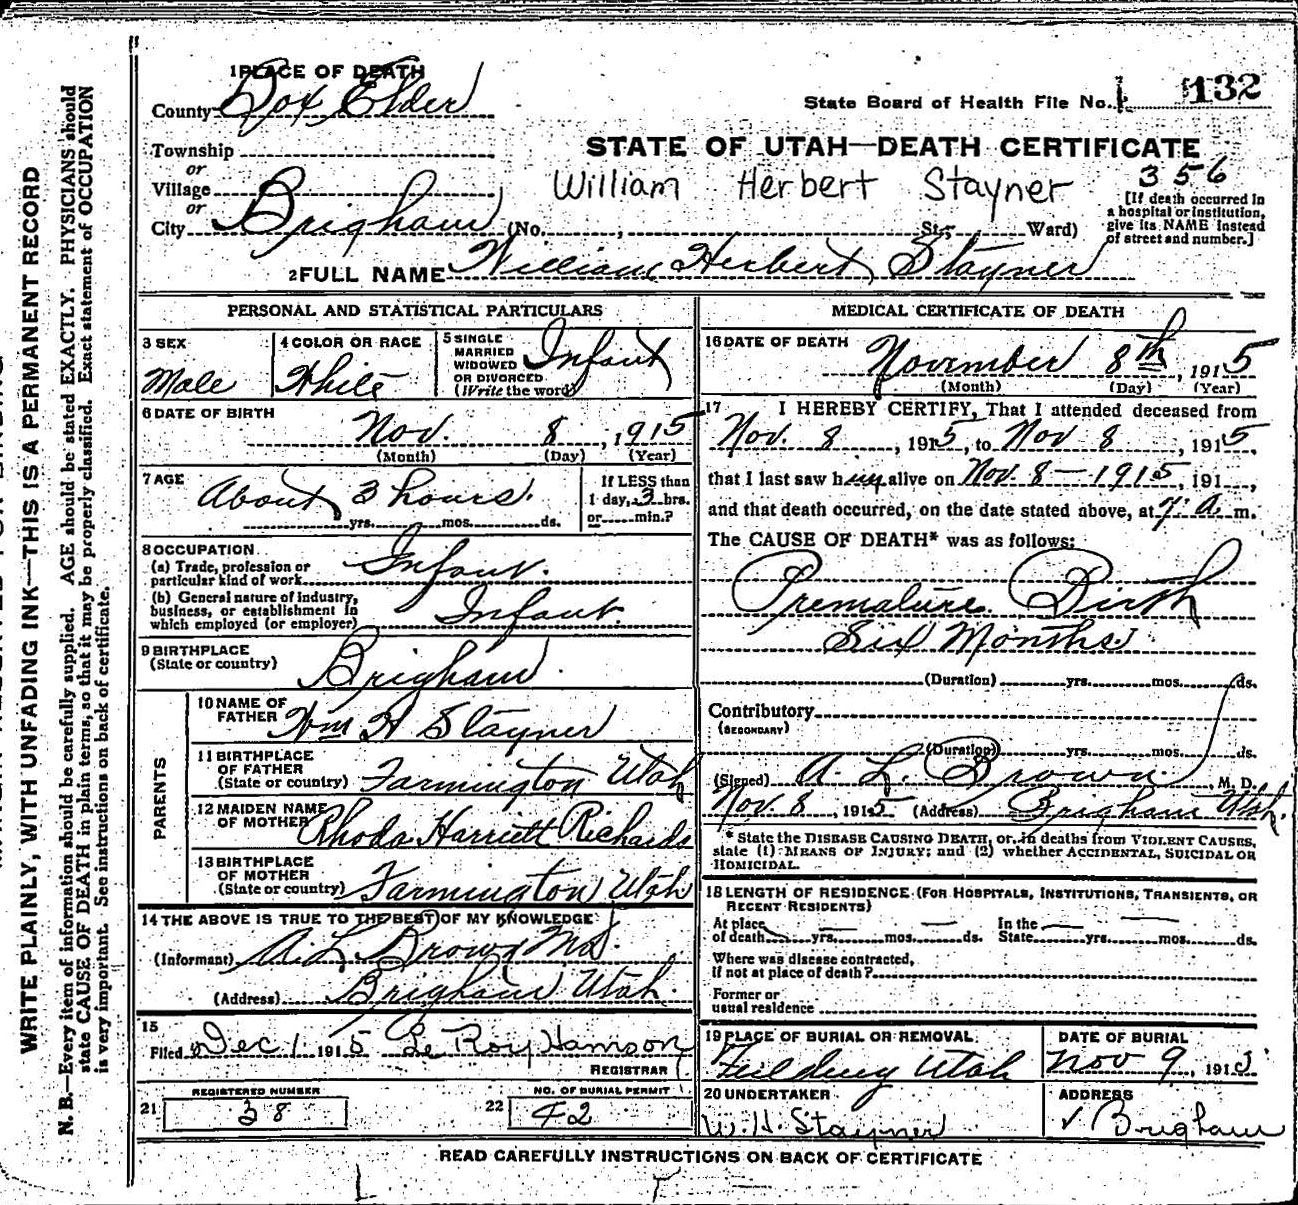 1 PLACE OF DEATH
County Box Elder
State Board of Health File No. 132
Township
or
Village
or
City Brigham (No. , St.; Ward)
STATE OF UTAH—DEATH CERTIFICATE
William Herbert Stayner
356
[If death occurred in a hospital or institution, give its NAME instead of street and number.]
2 FULL NAME William Herbert Stayner
PERSONAL AND STATISTICAL PARTICULARS
3 SEX
Male
4 COLOR OR RACE
White
5 SINGLE
MARRIED
WIDOWED
OR DIVORCED
(Write the word)
Infant
6 DATE OF BIRTH
Nov. 8, 1915
(Month) (Day) (Year)
7 AGE
About 3 hours.
yrs. mos. ds.
If LESS than
1 day, 3 hrs.
or min.?
8 OCCUPATION
(a) Trade, profession or
particular kind of work Infant.
(b) General nature of industry,
business, or establishment in
which employed (or employer) Infant.
9 BIRTHPLACE
(State or country) Brigham.
PARENTS
10 NAME OF
FATHER Wm H Stayner
11 BIRTHPLACE
OF FATHER
(State or country) Farmington Utah
12 MAIDEN NAME
OF MOTHER Rhoda Harriett Richards
13 BIRTHPLACE
OF MOTHER
(State or country) Farmington Utah
14 THE ABOVE IS TRUE TO THE BEST OF MY KNOWLEDGE
(Informant) A. L. Brown Md.
(Address) Brigham Utah.
15
Filed Dec 1 1915 Le Roy Harrison
REGISTRAR
REGISTERED NUMBER
21 38
NO. OF BURIAL PERMIT
22 42
MEDICAL CERTIFICATE OF DEATH
16 DATE OF DEATH
November 8th, 1915
(Month) (Day) (Year)
17 I HEREBY CERTIFY, That I attended deceased from
Nov. 8, 1915, to Nov 8, 1915
that I last saw him alive on Nov. 8—1915, 191
and that death occurred, on the date stated above, at 7. a. m.
The CAUSE OF DEATH* was as follows:
Premature Birth
Six Months.
(Duration) yrs. mos. ds.
Contributory
(SECONDARY)
(Duration) yrs. mos. ds.
(Signed) A. L. Brown, M. D.
Nov. 8, 1915 (Address) Brigham Utah.
* State the DISEASE CAUSING DEATH, or, in deaths from VIOLENT CAUSES,
state (1) MEANS OF INJURY; and (2) whether ACCIDENTAL, SUICIDAL OR
HOMICIDAL.
18 LENGTH OF RESIDENCE (FOR HOSPITALS, INSTITUTIONS, TRANSIENTS, OR
RECENT RESIDENTS)
At place In the
of death yrs. mos. ds. State yrs. mos. ds.
Where was disease contracted,
if not at place of death?
Former or
usual residence
19 PLACE OF BURIAL OR REMOVAL
Fielding Utah
DATE OF BURIAL
Nov 9, 1915
20 UNDERTAKER
W. H. Stayner
ADDRESS
✓ Brigham
READ CAREFULLY INSTRUCTIONS ON BACK OF CERTIFICATE
WRITE PLAINLY, WITH UNFADING INK—THIS IS A PERMANENT RECORD
N. B.—Every item of information should be carefully supplied. AGE should be stated EXACTLY. PHYSICIANS should
state CAUSE OF DEATH in plain terms, so that it may be properly classified. Exact statement of OCCUPATION
is very important. See instructions on back of certificate.